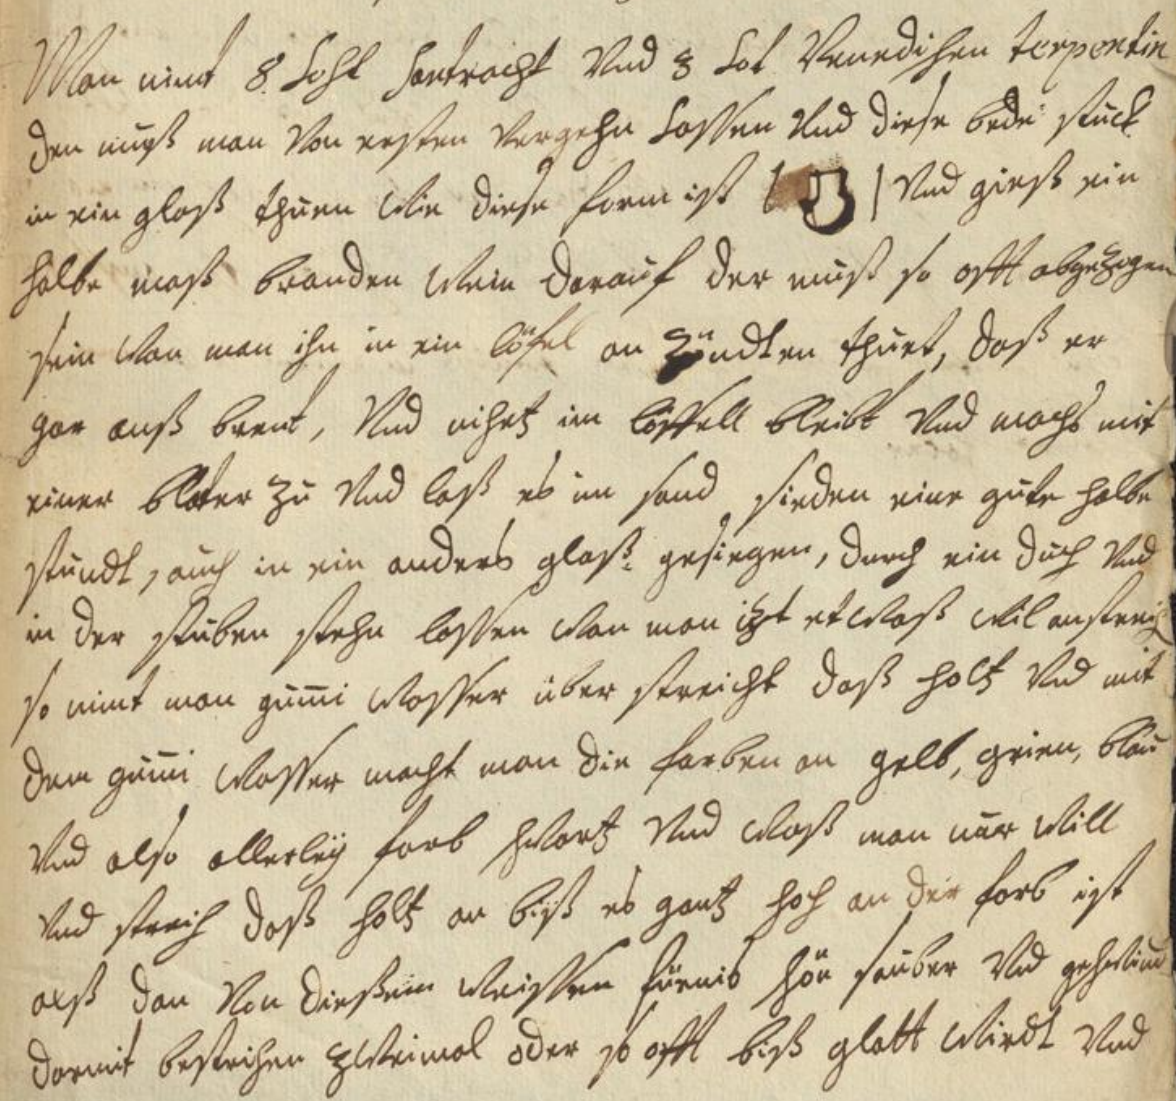 Man nimt 8 Loht santracht Und 8 Lot Venedischen terpentin
den muß man Von ersten Vergehn Lassen Und diese bede stuck
in ein glaß thuen Wie diese form ist Und gieß ein
halbe maß branden Wein darauf der muß so offt abgezogen
sein Wan man ihn in ein löfel an zündten thuet, daß er
gar auß brent, Und nichtz im löffell bleibt Und machs mit
einer blater zu Und laß es im sand sieden eine gute halbe
stundt, auch in ein anders glaß gesiegen, durch ein duch Und
in der stuben stehn lassen Wan man itzt etWaß Wil anstreich
so nimt man gumi Wasser über streicht daß holtz Und mit
dem gumi Wasser macht man die farben an gelb, grien, blau
Und also allerley farb schWartz Und Waß man nur Will
Und streich daß holtz an biß es gantz hoch an der farb ist
alß dan Von dießem Weissen fürnis schön sauber Und geschWind
darmit bestreichen zWeimal oder so offt biß glatt Wirdt Und